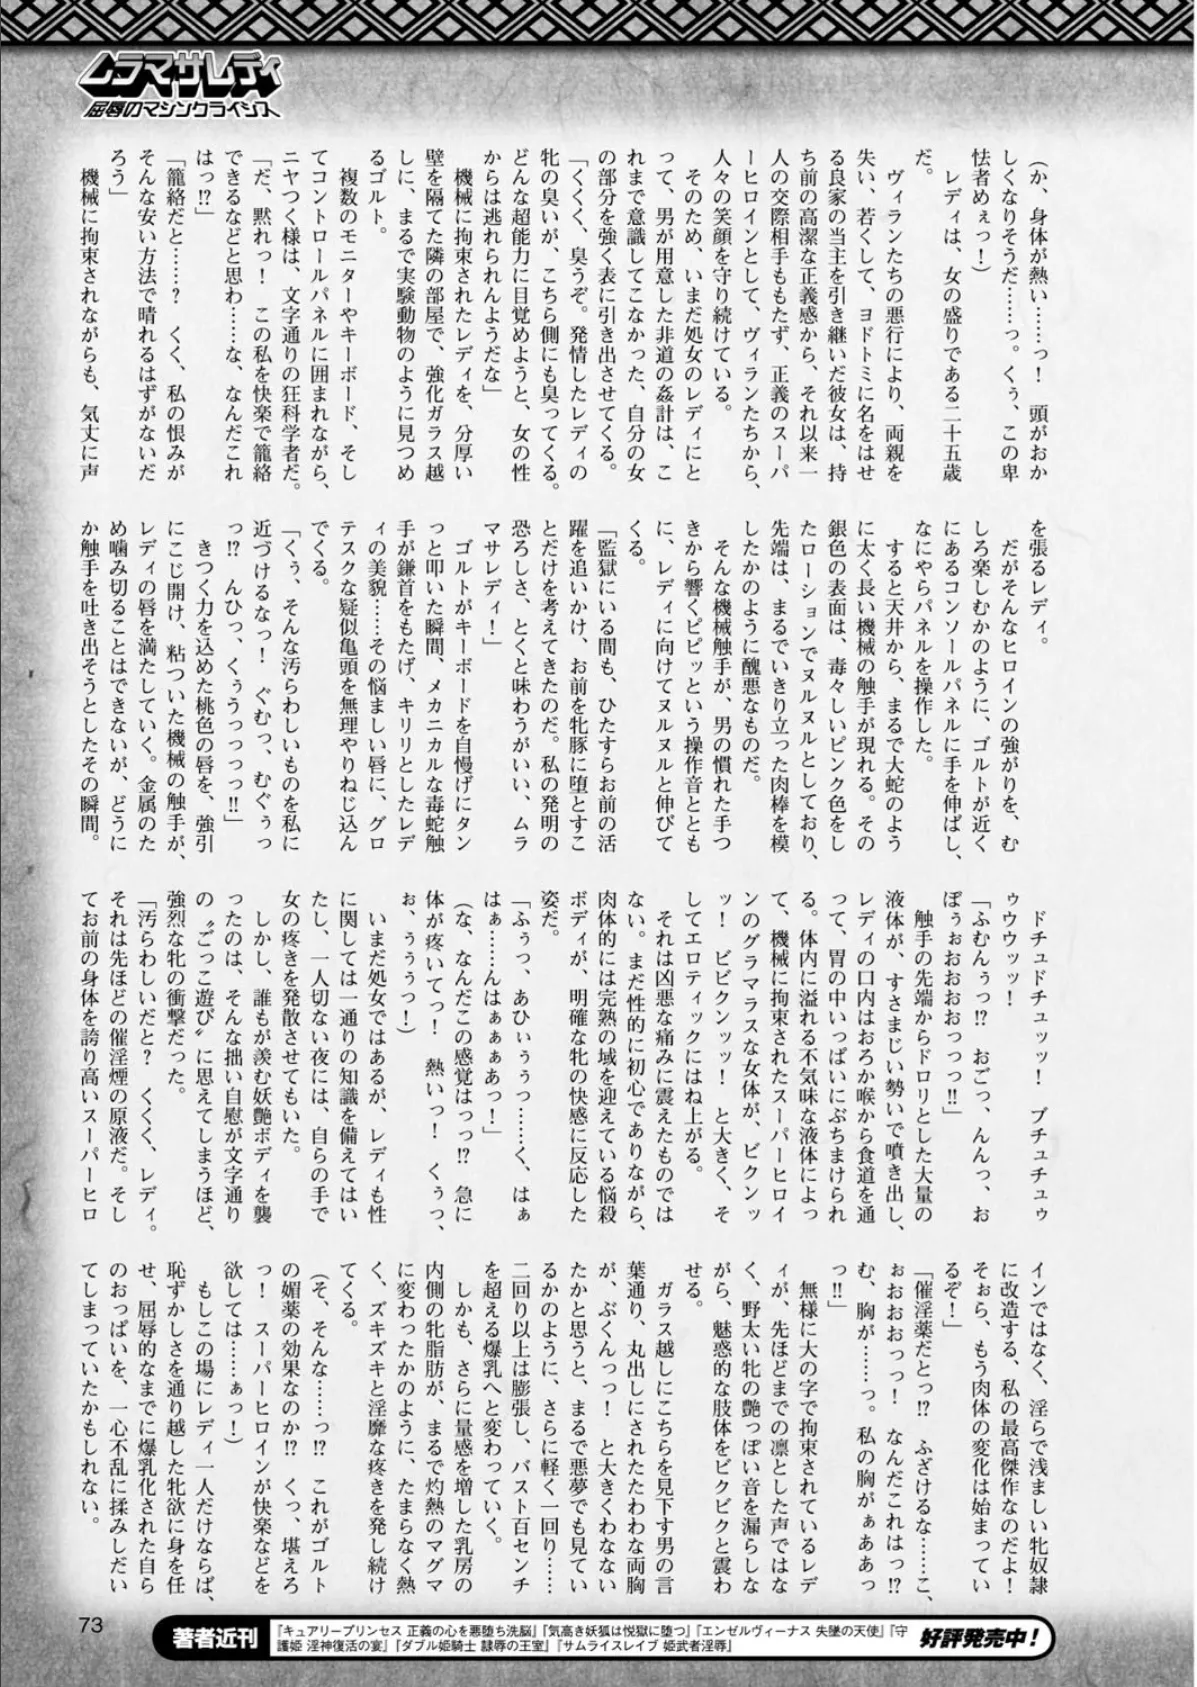 ムラマサレディ
屈辱のマシンクライシス
（か、身体が熱い……っ！　頭がおか
しくなりそうだ……っ。くぅ、この卑
怯者めぇっ！）
レディは、女の盛りである二十五歳
だ。
ヴィランたちの悪行により、両親を
失い、若くして、ヨドトミに名をはせ
る良家の当主を引き継いだ彼女は、持
ち前の高潔な正義感から、それ以来一
人の交際相手ももたず、正義のスーパ
ーヒロインとして、ヴィランたちから、
人々の笑顔を守り続けている。
そのため、いまだ処女のレディにと
って、男が用意した非道の姦計は、こ
れまで意識してこなかった、自分の女
の部分を強く表に引き出させてくる。
「くくく、臭うぞ。発情したレディの
牝の臭いが、こちら側にも臭ってくる。
どんな超能力に目覚めようと、女の性
からは逃れられんようだな」
機械に拘束されたレディを、分厚い
壁を隔てた隣の部屋で、強化ガラス越
しに、まるで実験動物のように見つめ
るゴルト。
複数のモニターやキーボード、そし
てコントロールパネルに囲まれながら、
ニヤつく様は、文字通りの狂科学者だ。
「だ、黙れっ！　この私を快楽で籠絡
できるなどと思わ……な、なんだこれ
はっ!?」
「籠絡だと……？　くく、私の恨みが
そんな安い方法で晴れるはずがないだ
ろう」
機械に拘束されながらも、気丈に声
を張るレディ。
だがそんなヒロインの強がりを、む
しろ楽しむかのように、ゴルトが近く
にあるコンソールパネルに手を伸ばし、
なにやらパネルを操作した。
すると天井から、まるで大蛇のよう
に太く長い機械の触手が現れる。その
銀色の表面は、毒々しいピンク色をし
たローションでヌルヌルとしており、
先端は、まるでいきり立った肉棒を模
したかのように醜悪なものだ。
そんな機械触手が、男の慣れた手つ
きから響くピピッという操作音ととも
に、レディに向けてヌルヌルと伸びて
くる。
「監獄にいる間も、ひたすらお前の活
躍を追いかけ、お前を牝豚に堕とすこ
とだけを考えてきたのだ。私の発明の
恐ろしさ、とくと味わうがいい、ムラ
マサレディ！」
ゴルトがキーボードを自慢げにタン
っと叩いた瞬間、メカニカルな毒蛇触
手が鎌首をもたげ、キリリとしたレデ
ィの美貌……その悩ましい唇に、グロ
テスクな疑似亀頭を無理やりねじ込ん
でくる。
「くぅ、そんな汚らわしいものを私に
近づけるなっ！　ぐむっ、むぐぅっ
っ!?　んひっ、くぅうっっっっ!!」
きつく力を込めた桃色の唇を、強引
にこじ開け、粘ついた機械の触手が、
レディの唇を満たしていく。金属のた
め噛み切ることはできないが、どうに
か触手を吐き出そうとしたその瞬間。
ドチュドチュッッ！　ブチュチュゥ
ゥウウッッ！
「ふむんぅっ!?　おごっ、んんっ、お
ぽぅぉおおおおっっっ!!」
触手の先端からドロリとした大量の
液体が、すさまじい勢いで噴き出し、
レディの口内はおろか喉から食道を通
って、胃の中いっぱいにぶちまけられ
る。体内に溢れる不気味な液体によっ
て、機械に拘束されたスーパーヒロイ
ンのグラマラスな女体が、ビクンッ
ッ！　ビビクンッッ！　と大きく、そ
してエロティックにはね上がる。
それは凶悪な痛みに震えたものでは
ない。まだ性的に初心でありながら、
肉体的には完熟の域を迎えている悩殺
ボディが、明確な牝の快感に反応した
姿だ。
「ふぅっ、あひぃぅぅっ……く、はぁ
はぁ……んはぁぁぁあっ！」
（な、なんだこの感覚はっっ!?　急に
体が疼いてっ！　熱いっ！　くぅっ、
ぉ、うぅぅっ！）
いまだ処女ではあるが、レディも性
に関しては一通りの知識を備えてはい
たし、一人切ない夜には、自らの手で
女の疼きを発散させてもいた。
しかし、誰もが羨む妖艶ボディを襲
ったのは、そんな拙い自慰が文字通り
の〝ごっこ遊び〟に思えてしまうほど、
強烈な牝の衝撃だった。
「汚らわしいだと？　くくく、レディ。
それは先ほどの催淫煙の原液だ。そし
てお前の身体を誇り高いスーパーヒロ
インではなく、淫らで浅ましい牝奴隷
に改造する、私の最高傑作なのだよ！
そぉら、もう肉体の変化は始まってい
るぞ！」
「催淫薬だとっ!?　ふざけるな……こ、
ぉおおおっっ！　なんだこれはっ!?
む、胸が……っ。私の胸がぁああっ
っ!!」
無様に大の字で拘束されているレデ
ィが、先ほどまでの凛とした声ではな
く、野太い牝の艶っぽい音を漏らしな
がら、魅惑的な肢体をビクビクと震わ
せる。
ガラス越しにこちらを見下す男の言
葉通り、丸出しにされたたわわな両胸
が、ぶくんっっ！　と大きくわなない
たかと思うと、まるで悪夢でも見てい
るかのように、さらに軽く一回り……
二回り以上は膨張し、バスト百センチ
を超える爆乳へと変わっていく。
しかも、さらに量感を増した乳房の
内側の牝脂肪が、まるで灼熱のマグマ
に変わったかのように、たまらなく熱
く、ズキズキと淫靡な疼きを発し続け
てくる。
（そ、そんな……っ!?　これがゴルト
の媚薬の効果なのか!?　くっ、堪えろ
っ！　スーパーヒロインが快楽などを
欲しては……ぁっ！）
もしこの場にレディ一人だけならば、
恥ずかしさを通り越した牝欲に身を任
せ、屈辱的なまでに爆乳化された自ら
のおっぱいを、一心不乱に揉みしだい
てしまっていたかもしれない。
73
著者近刊
『キュアリープリンセス 正義の心を悪堕ち洗脳』『気高き妖狐は悦獄に堕つ』『エンゼルヴィーナス 失墜の天使』『守
護姫 淫神復活の宴』『ダブル姫騎士 隷辱の王室』『サムライスレイブ 姫武者淫辱』
好評発売中！